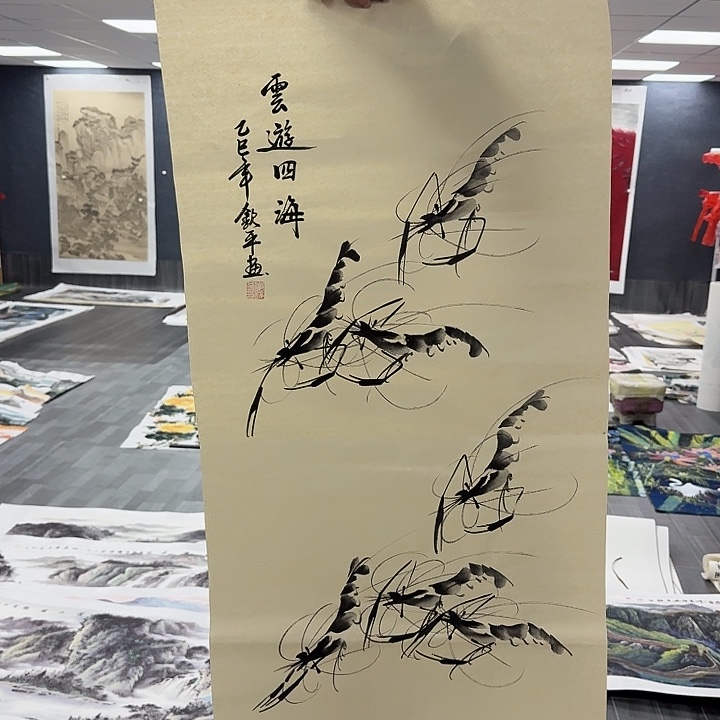 雲遊四海
乙巳年 欽平畫